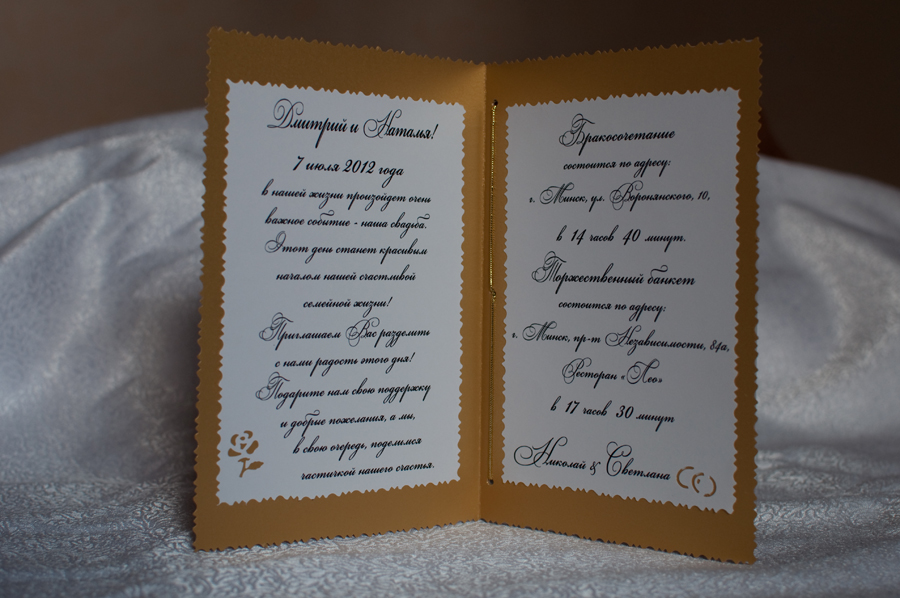 Дмитрий и Наталья!
7 июля 2012 года
в нашей жизни произойдет очень
важное событие - наша свадьба.
Этот день станет красивым
началом нашей счастливой
семейной жизни!
Приглашаем Вас разделить
с нами радость этого дня!
Подарите нам свою поддержку
и добрые пожелания, а мы,
в свою очередь, поделимся
частичкой нашего счастья.
Бракосочетание
состоится по адресу:
г. Минск, ул. Воронянского, 10,
в 14 часов 40 минут.
Торжественный банкет
состоится по адресу:
г. Минск, пр-т Независимости, 84а,
Ресторан «Лео»
в 17 часов 30 минут
Николай & Светлана